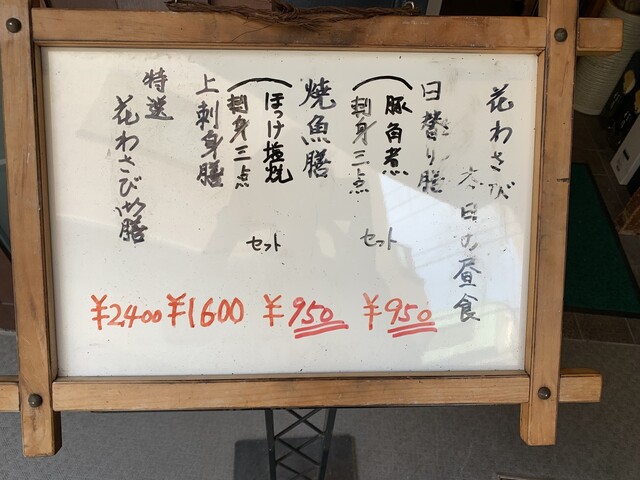 花わさび
本日の昼食
日替り膳
豚角煮
刺身三点
セット
¥950
焼魚膳
ほっけ塩焼
刺身三点
セット
¥950
上刺身膳
¥1600
特選
花わさび御膳
¥2,400